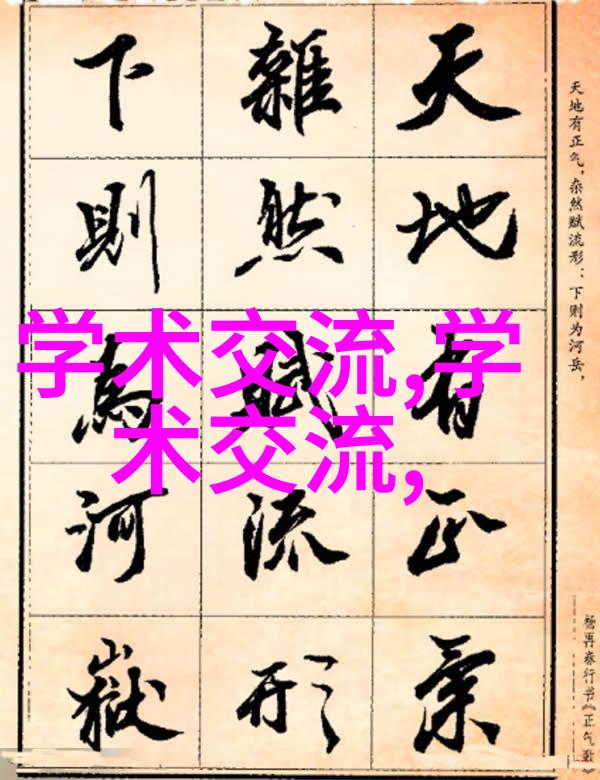 天地有正氣
雜然賦流形
下則為河嶽
天地有正气，杂然赋流形：下则为河岳，
杨再春行书《正气歌》
学术交流,学
术交流,